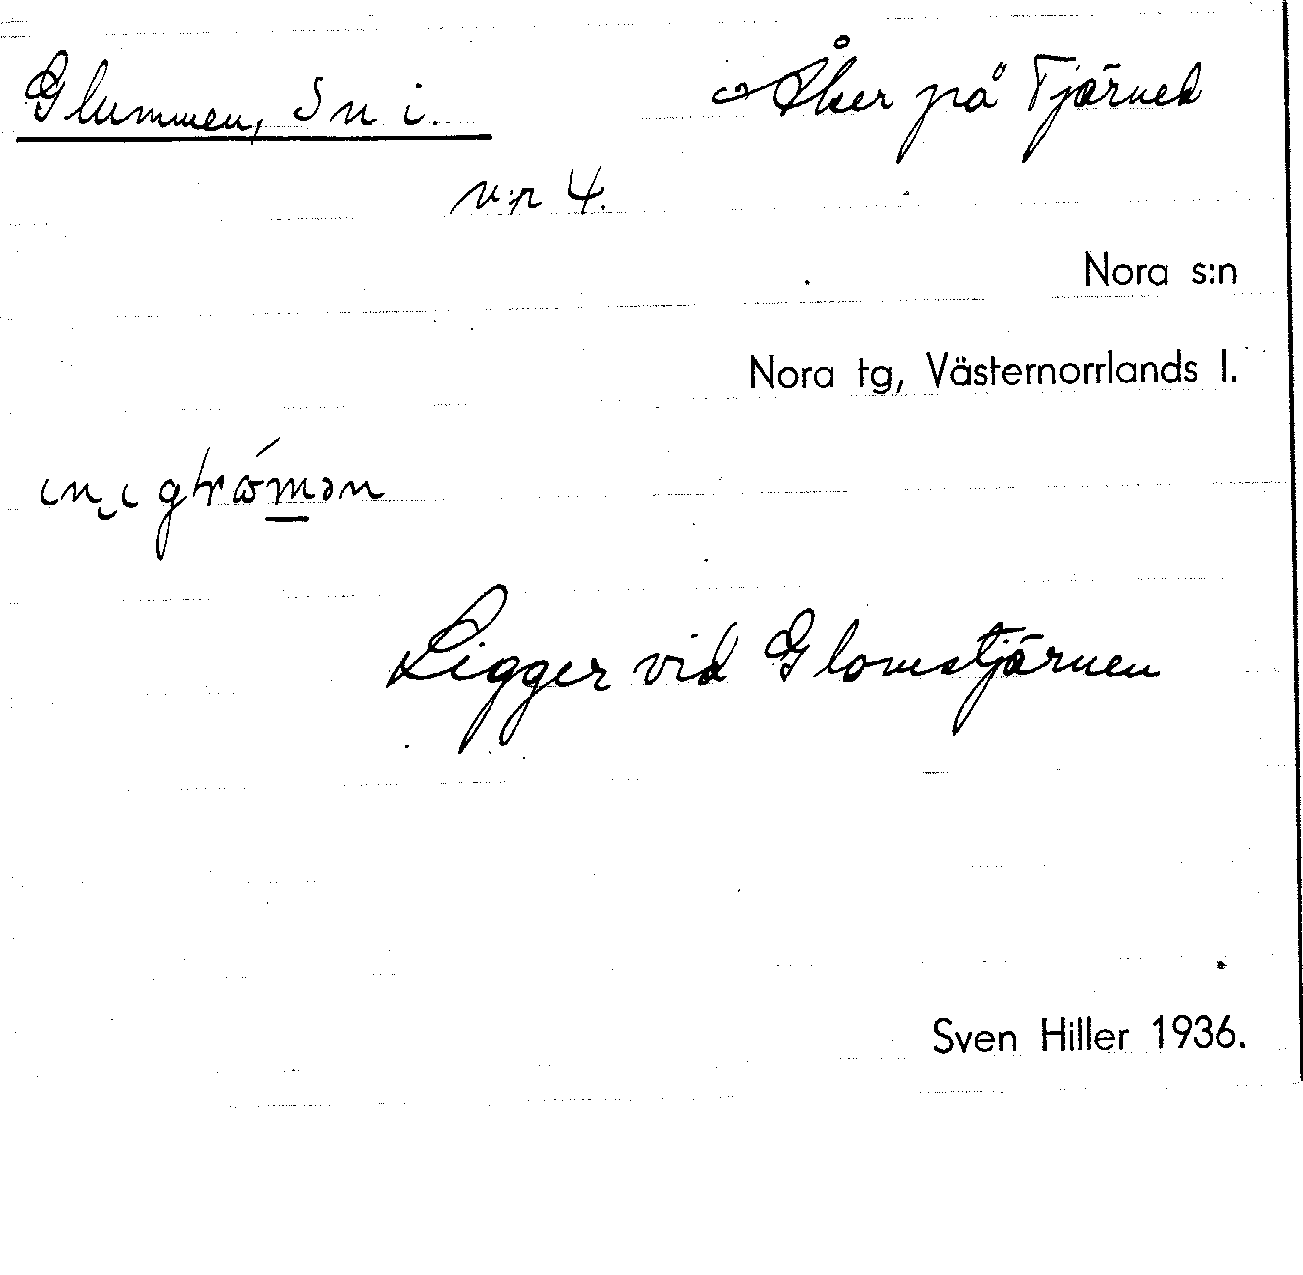 Glummen, Sn i. Åker på Tjärned
n:r 4.
Nora s:n
Nora tg, Västernorrlands l.
Ligger vid Glomstjärnen
Sven Hiller 1936.